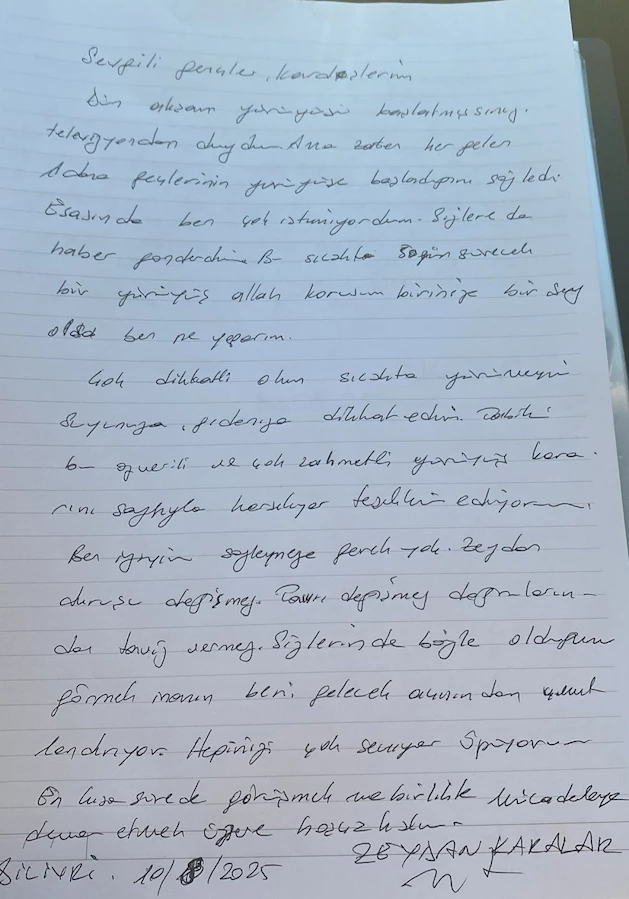 Sevgili gençler, kardeşlerim
Dün akşam yürüyüşü başlatmışsınız.
televizyondan duydum. Ama zaten her gelen
Adana gençlerinin yürüyüşe başladığını söyledi.
Esasında ben çok istemiyordum. Sizlere de
haber gönderdim. Bu sıcakta 50 gün sürecek
bir yürüyüş allah korusun birinize bir şey
olsa ben ne yaparım.
Çok dikkatli olun sıcakta yürümeyin
Suyunuza, gıdanıza dikkat edin. Tabiki
bu özverili ve çok zahmetli yürüyüş kara-
rını saygıyla karşılıyor teşekkür ediyorum.
Ben iyiyim söylemeye gerek yok. Zeydan
duruşu değişmez. Tavrı değişmez doğruların-
dan taviz vermez. Sizlerinde böyle olduğunu
görmek inanın beni gelecek açısından umut
lendiriyor. Hepinizi çok seviyor öpüyorum
En kısa sürede görüşmek ve birlikte mücadeleye
devam etmek üzere hoşçakalın.
ZEYDAN KARALAR
SİLİVRİ. 10/8/2025